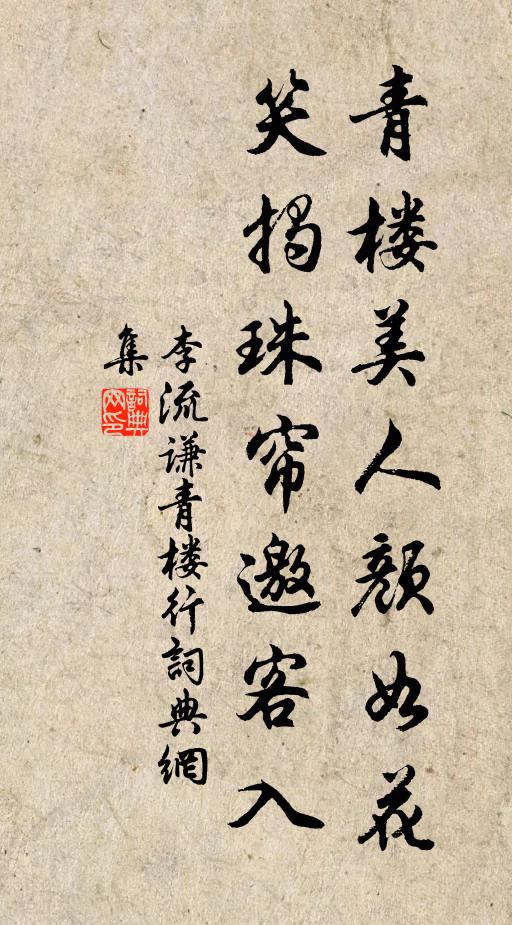 青楼美人颜如花
笑揭珠帘邀客入
李流谦青楼行詞典網
集
詞典網印